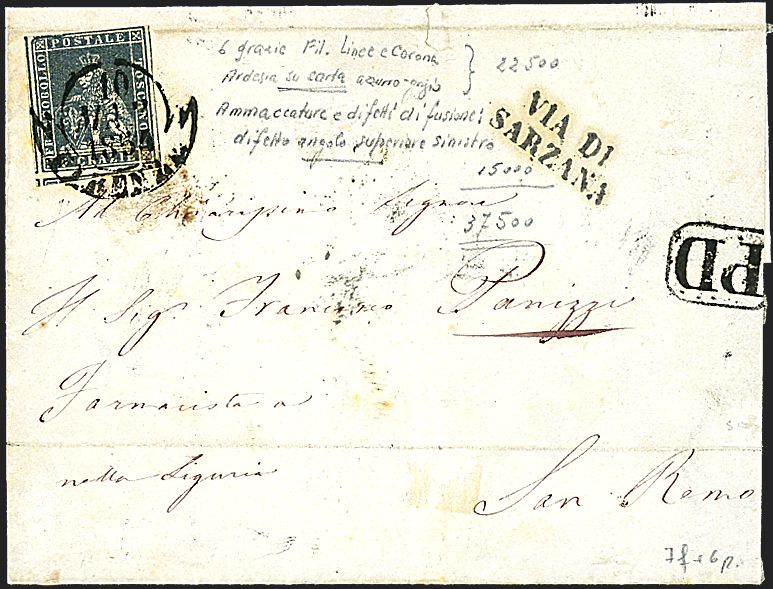 POSTALE
FRANCOBOLLO
TOSCANO
10
FIRENZE
6 grazie Fil. Linee e Corona
22500
Ardesia su carta azzurro-grigio
Ammaccature e difetti di fusione;
difetto angolo superiore sinistro
15000
37500
VIA DI
SARZANA
PD
Al Chiarissimo Signore
Il Sig. Francesco Panizzi
Farmacista a
nella Liguria
San Remo